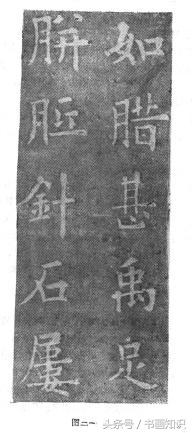 如腊甚禹足
胼胝針石屢
图二一
头条号 / 书画知识